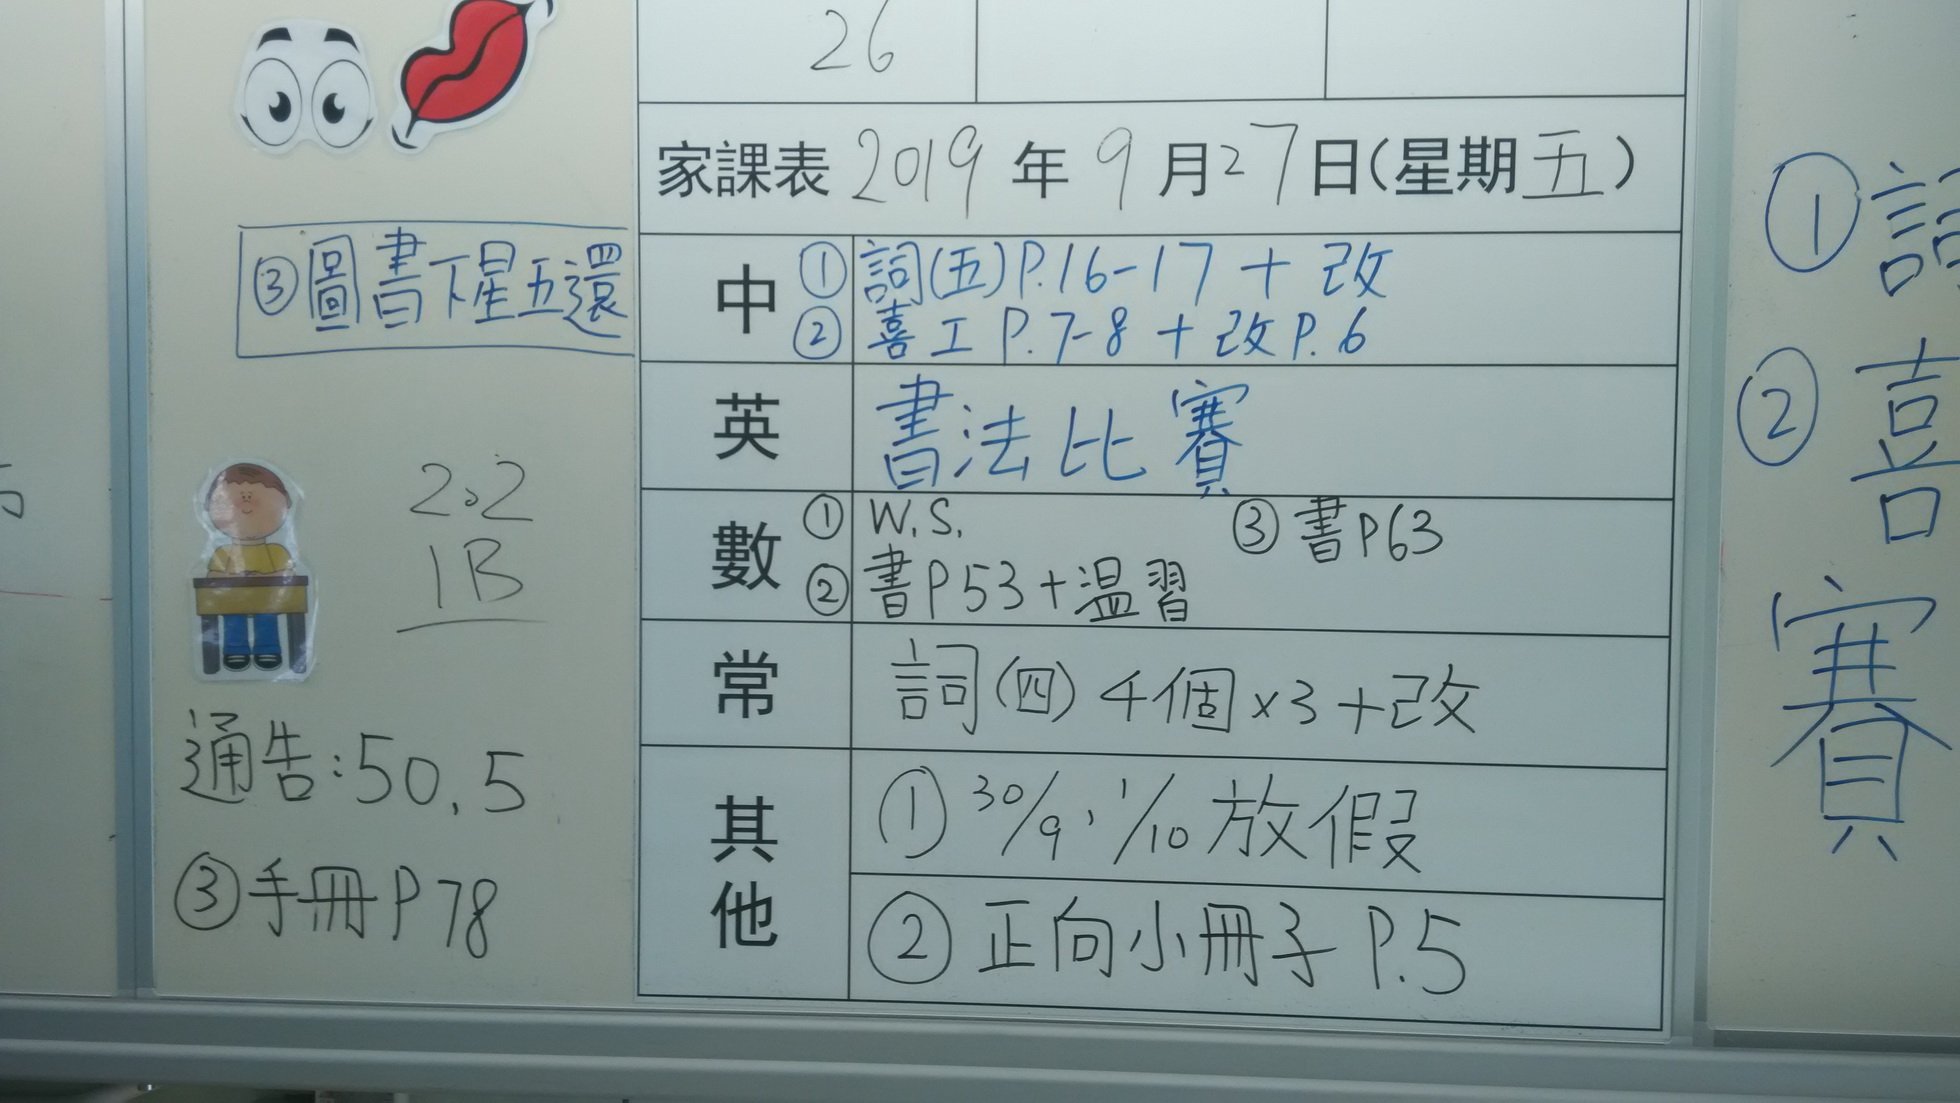 26
家課表 2019 年 9 月 27 日(星期 五 )
③圖書下星五還
中 ① 詞(五)P.16-17 + 改
② 喜工 P.7-8 + 改 P.6
英 書法比賽
數 ① W.S. ③ 書P63
② 書P53+温習
2.2
1B
常 詞(四) 4個x3+改
通告:50,5
其他 ① 30/9, 1/10 放假
③手冊P78
② 正向小冊子 P.5
①
② 喜
賽